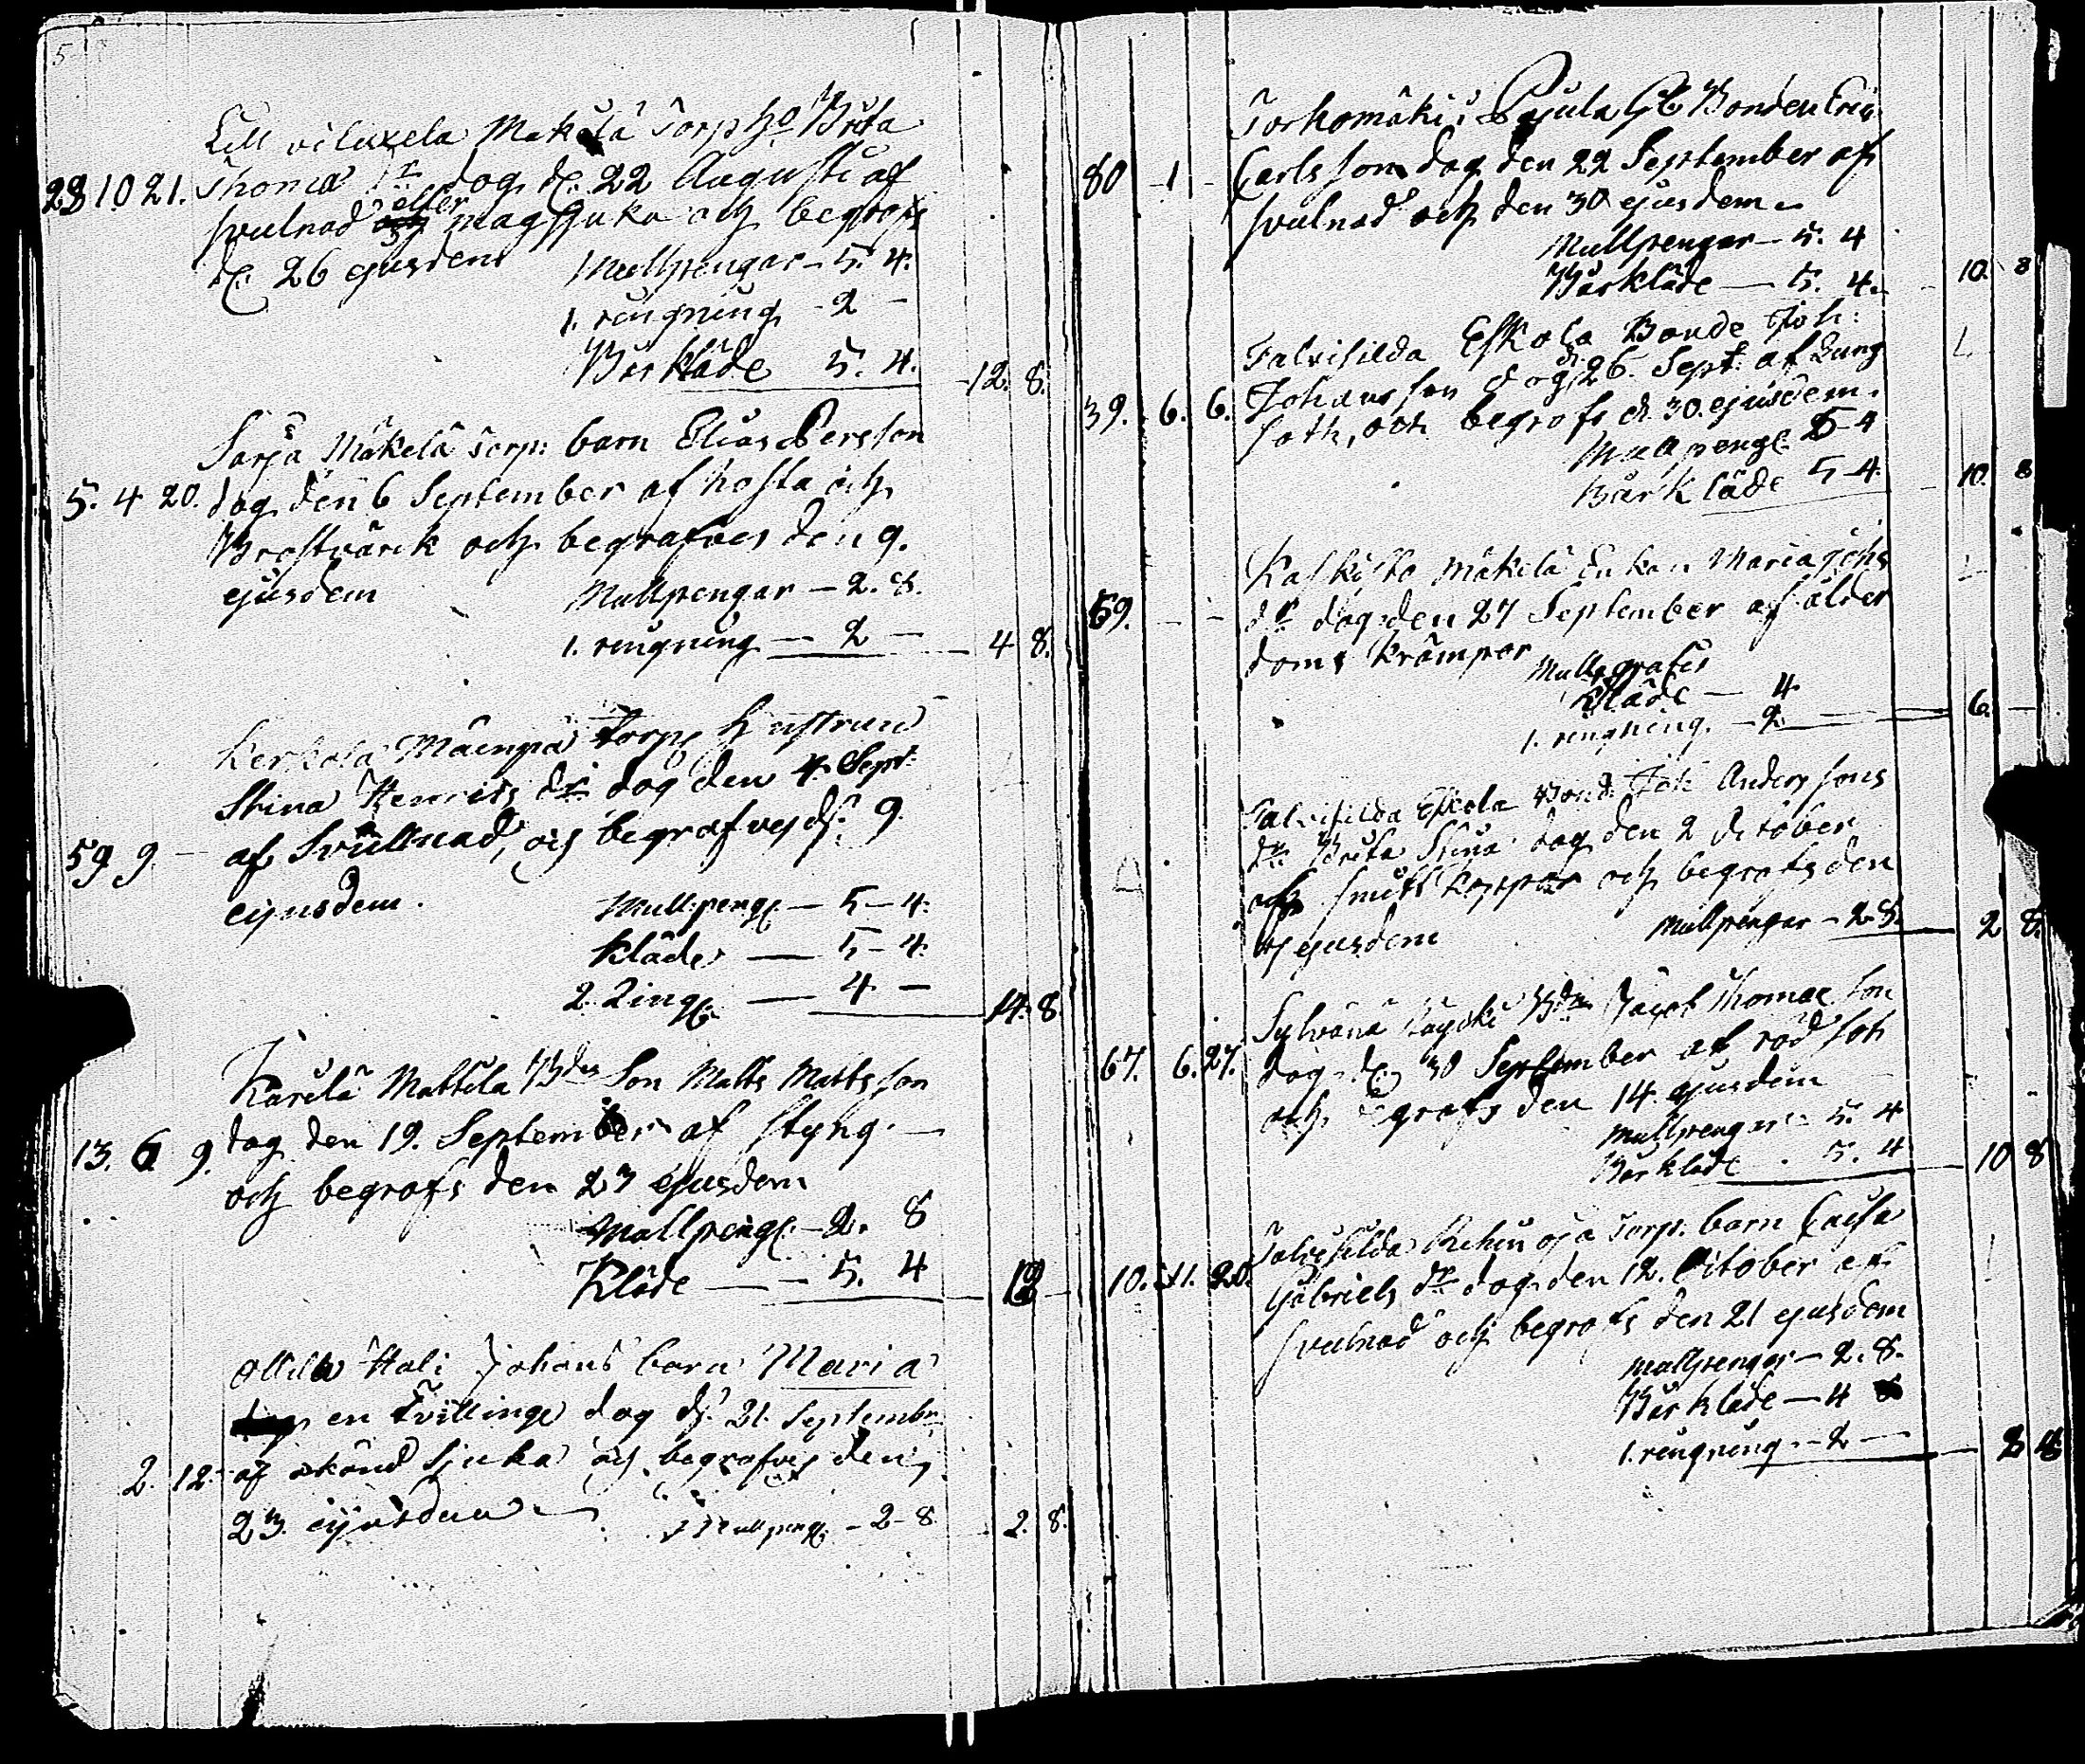 Lill viluxela Mäkelä Torp ho Brita
23 10 21. Thomæ Dr dog d. 22 Augusti af
svulnad eller magsjuka och begrofs
d. 26 ejusdem Mullpengar - 5. 4.
1. ringning - 2 -
Bårkläde 5. 4. - 12. 8.
Sarja Mäkelä Torp: barn Elias Persson
5. 4 20. dog den 6 September af hosta och
Bröstvärck och begrafves den 9.
ejusdem Mullpengar - 2. 8.
1. ringning - 2 - 4 8.
Kerkola Mäenpä Torp Hustrun
Stina Henrics dr dog den 4. Sept:
59 9 - af Svullnad, och begrafves d. 9
ejusdem. Mullpeng - 5 - 4.
Kläde - 5 - 4.
2. Ring - 4 - 14. 8
Karilä Mattila Bdes Son Matts Mattsson
13. 6 9. dog den 19. September af styng. -
och begrofs den 23 ejusdem
Mullpeng - 2. 8
Kläde - 5. 4
Ollila Hali Johans barn Maria
en Tvillinge dog d. 21. Septembr
2. 12. af okänd Sjuka och begrafves den
23. ejusdem - Mullpeng - 2 - 8 2. 8.
Torkomäki Pajula Gl Bonden Eric
80 - 1 - Carlsson dog den 22 September af
svulnad och den 30 ejusdem
Mullpengar - 5. 4
Bårkläde - 5. 4. 10. 8
Talvisilda Eskola Bonde Joh:
39. 6. 6. Johansson dog d. 26. Sept. af Lung
soth, och begrofs d. 30. ejusdem.
Mullpeng 5 - 4
Bårkläde 5 - 4. 10. 8
Kaskisto Mäkelä Enkan Maria Johs
69. - - dr dog den 27 September af ålder
doms krämpor
Kläde - 4
1. ringning. - 2 6. -
Talvisilda Eskola Bond. Joh Anderssons
dr Brita Stina dog den 2 October
af smitt koppor och begrofs den
ejusdem Mullpengar - 2. 8. 2 8.
Sylvänä Bdn Jacob Thomæ son
67. 6. 27. dog d. 30 September af röd sot
och begrofs den 14 ejusdem
Mullpengar - 5. 4
Bårkläde. 5. 4 10 8
Talvisilda Rihinoja Torp. barn Caisa
10. 11. 20. Gabriels dr dog den 12. October af
svulnad och begrofs den 21 ejusdem
Mullpengar - 2. 8.
Bårkläde - 4
1. ringning - 2 -